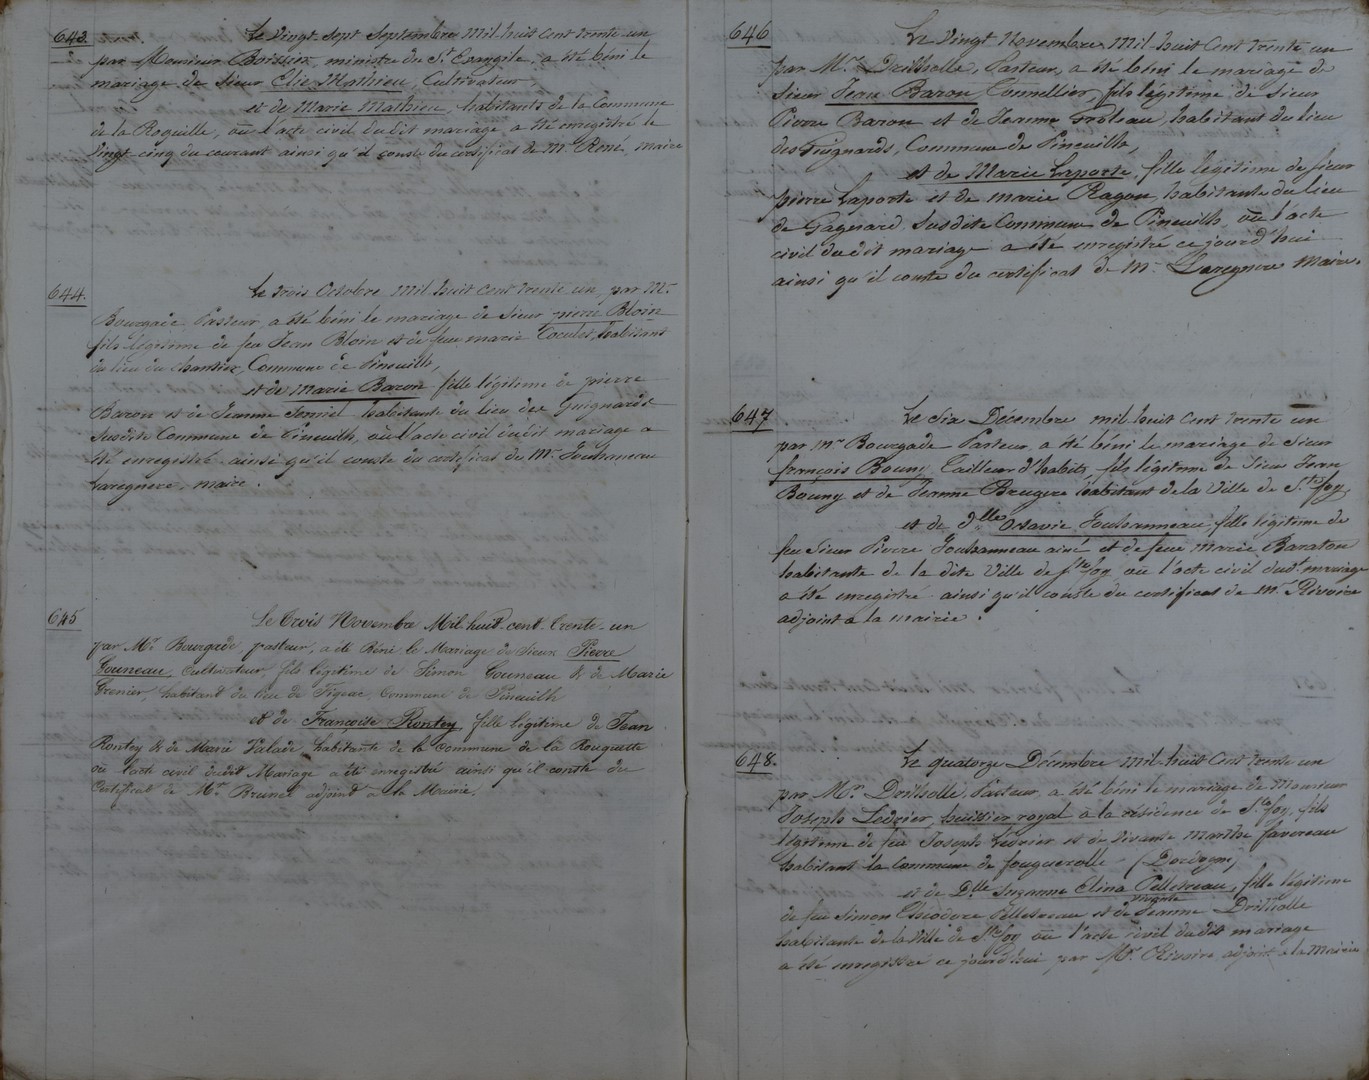 643.
Le Vingt Sept Septembre Mil huit Cent trente un
par Monsieur Boissier, ministre du St. Evangile, a été béni le
mariage de Sieur Elie Mathieu, Cultivateur
et de Marie Mathieu, habitants de la Commune
de la Roquille, où l'acte civil du dit mariage a été enregistré le
Vingt cinq du courant ainsi qu'il conste du certificat de Mr. René, Maire
644.
Le trois Octobre Mil huit cent trente un, par Mr.
Bourgade Pasteur, a été béni le mariage de Sieur pierre Bloin
fils légitime de feu Jean Bloin et de feue marie habitant
du lieu du Commune de Pineuilh,
et de Marie Baron fille légitime de pierre
Baron et de Jeanne habitante du lieu des Guignards
Susdite Commune de Pineuilh, où l'acte civil dudit mariage a
été enregistré ainsi qu'il conste du certificat de Mr. Jouhanneau
Laregnere, maire.
645
Le trois Novembre Mil-huit-cent-trente-un
par Mr. Bourgade, pasteur, a été Béni le Mariage de Sieur Pierre
Gouneau, Cultivateur, fils légitime de Simon Gouneau & de Marie
Grenier, habitant du lieu de Commune de Pineuilh
et de Françoise Rontey fille légitime de Jean
Rontey & de Marie habitante de la Commune de la Rouquette
où l'acte civil dudit Mariage a été enregistré ainsi qu'il conste du
Certificat de Mr. Brunet adjoint à la Mairie.
646
Le Vingt Novembre Mil huit Cent trente un
par Mr. Drilholle, Pasteur, a été béni le mariage de
Sieur Jean Baron Tonnellier, fils légitime de Sieur
Pierre Baron et de Jeanne habitant du lieu
des Guignards, Commune de Pineuilh,
et de Marie Laporte, fille légitime de Sieur
pierre Laporte et de marie Ragon, habitante du lieu
de Gagnard Susdite Commune de Pineuilh où l'acte
civil du dit mariage a été enregistré ce jourd'hui
ainsi qu'il conste du certificat de Mr. Laregnere Maire.
647
Le Six Décembre mil huit Cent trente un
par Mr. Bourgade Pasteur, a été béni le mariage de Sieur
françois Bouny Tailleur d'habits, fils légitime de Sieur Jean
Bouny et de Jeanne Brugere habitant de la Ville de Ste. foy,
et de Dlle Octavie Jouhanneau, fille légitime de
feu Sieur Pierre Jouhanneau ainé et de feue Marie Baraton
habitante de la dite Ville de Ste foy où l'acte civil dudt. mariage
a été enregistré ainsi qu'il conste du certificat de Mr. Rivoire
adjoint à la mairie.
648.
Le quatorze Décembre mil huit Cent trente un
par Mr. Drilholle, Pasteur, a été béni le mariage de Monsieur
Joseph Ledrier, huissier royal à la résidence de Ste. foy, fils
légitime de feu Joseph Ledrier et de vivante Marthe favereau
habitant la Commune de fouguerolle (Dordogne)
et de Dlle Suzanne Elina Pelletreau, fille légitime
de feu Simon Théodore Pelletreau et de vivante Jeanne Drilholle
habitante de la Ville de Ste. foy où l'acte civil du dit mariage
a été enregistré ce jourd'hui par Mr. Rivoire adjoint à la Mairie